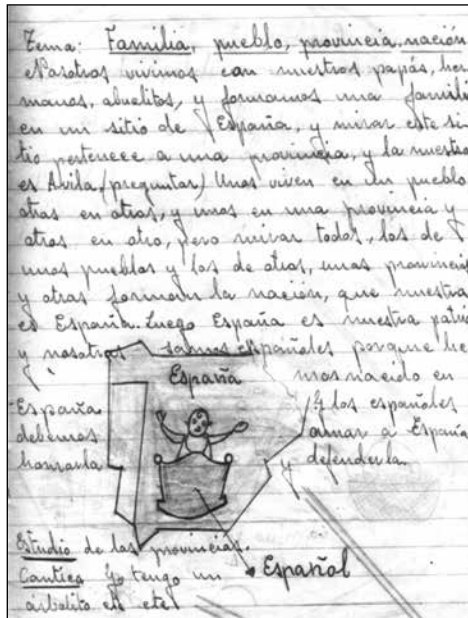 Tema: Familia, pueblo, provincia, nación
Nosotros vivimos con nuestros papás, her
manos, abuelitos, y formamos una famili
en un sitio de España, y mirar este si
tio pertenece a una provincia, y la nuestra
es Avila, (preguntar) Unos viven en un pueblo
otros en otros, y unos en una provincia y
otros en otra, pero mirar todos, los de
unos pueblos y los de otros, unas provincias
y otras forman la nación, que nuestra
es España. Luego España es nuestra patria
y nosotros somos españoles porque he
España
mos nacido en
España
y los españoles
debemos
amar a España
honrarla
y defenderla.
Estudio de las provincias.
Cantico Yo tengo un
Español
arbolito etc